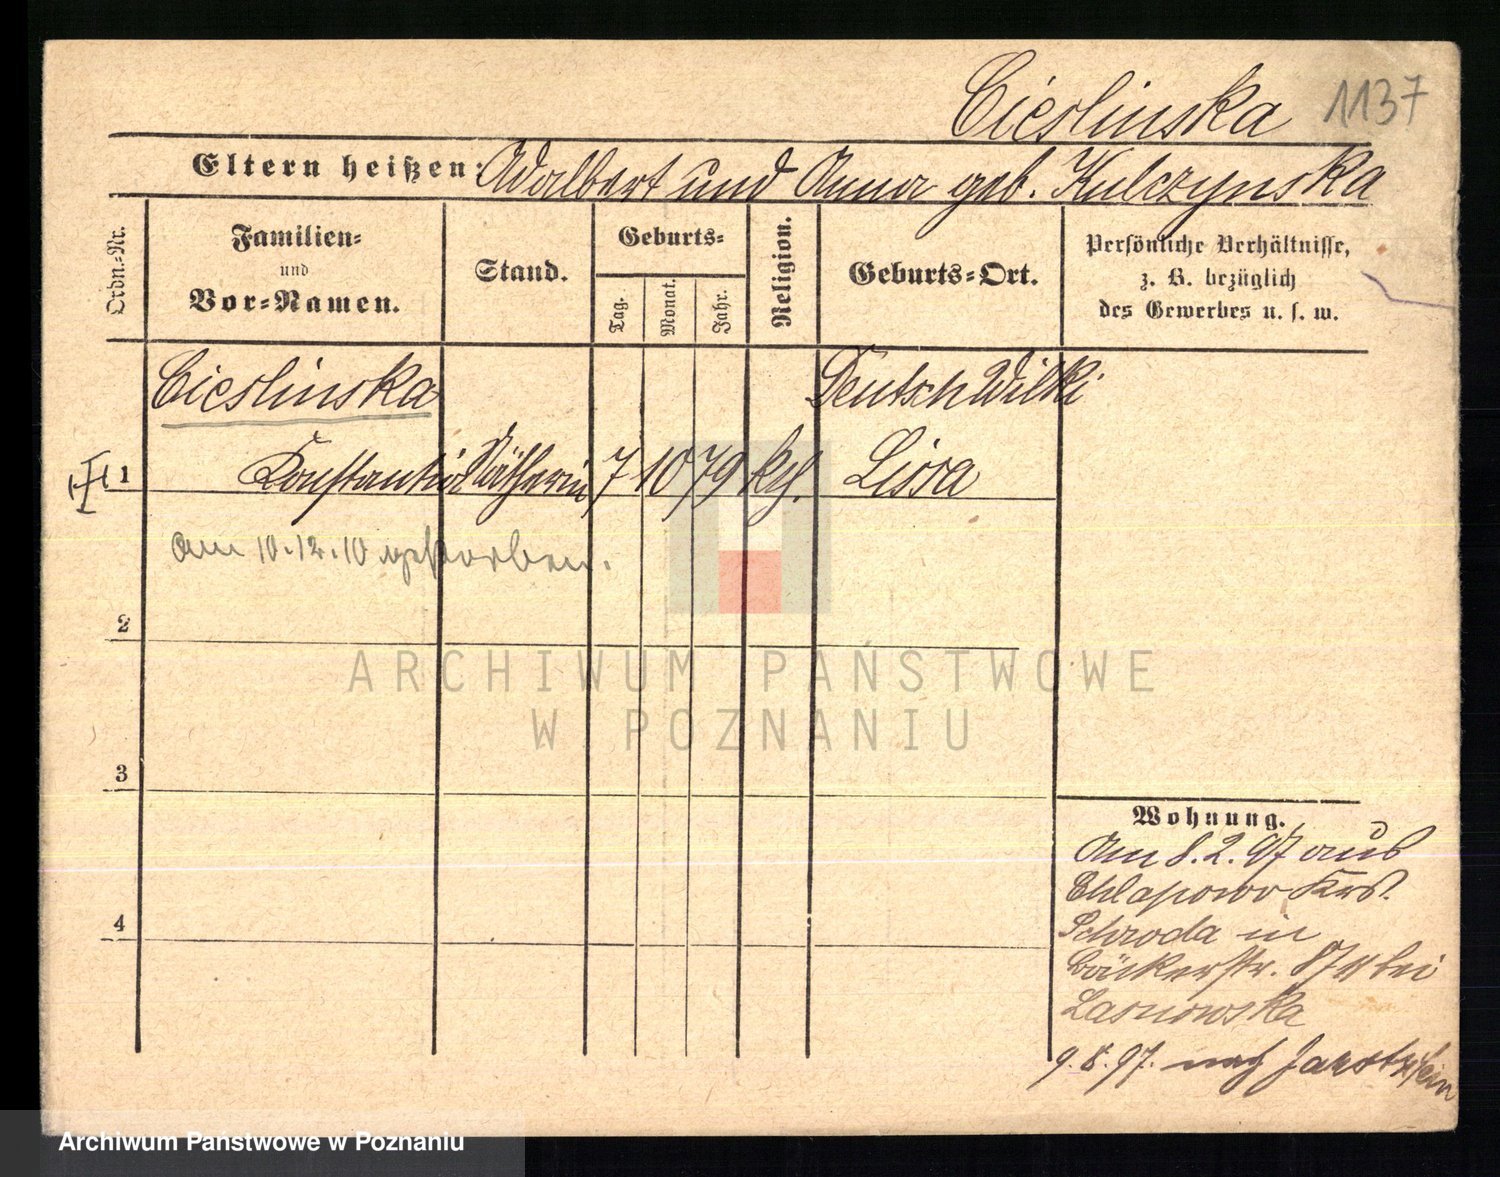 Cieslinska 1137
Eltern heißen: Adalbert und Anna geb. Kulczynska
Ordn.-Nr.
Familien-
und
Vor-Namen.
Stand.
Geburts-
Tag.
Monat.
Jahr.
Religion.
Geburts-Ort.
Persönliche Verhältnisse,
z. B. bezüglich
des Gewerbes u. s. w.
Cieslinska
Deutsch Wilki
1 Konstantia Nätherin 7 10 79 kth. Lissa
am 10.12.10 gestorben.
2
3
4
Wohnung.
Am 8.2.97 aus
Chlapowo Krs.
Schroda in
Bäckerstr. bei
Lasnowska
9.8.97. nach
ARCHIWUM PAŃSTWOWE
W POZNANIU
Archiwum Państwowe w Poznaniu